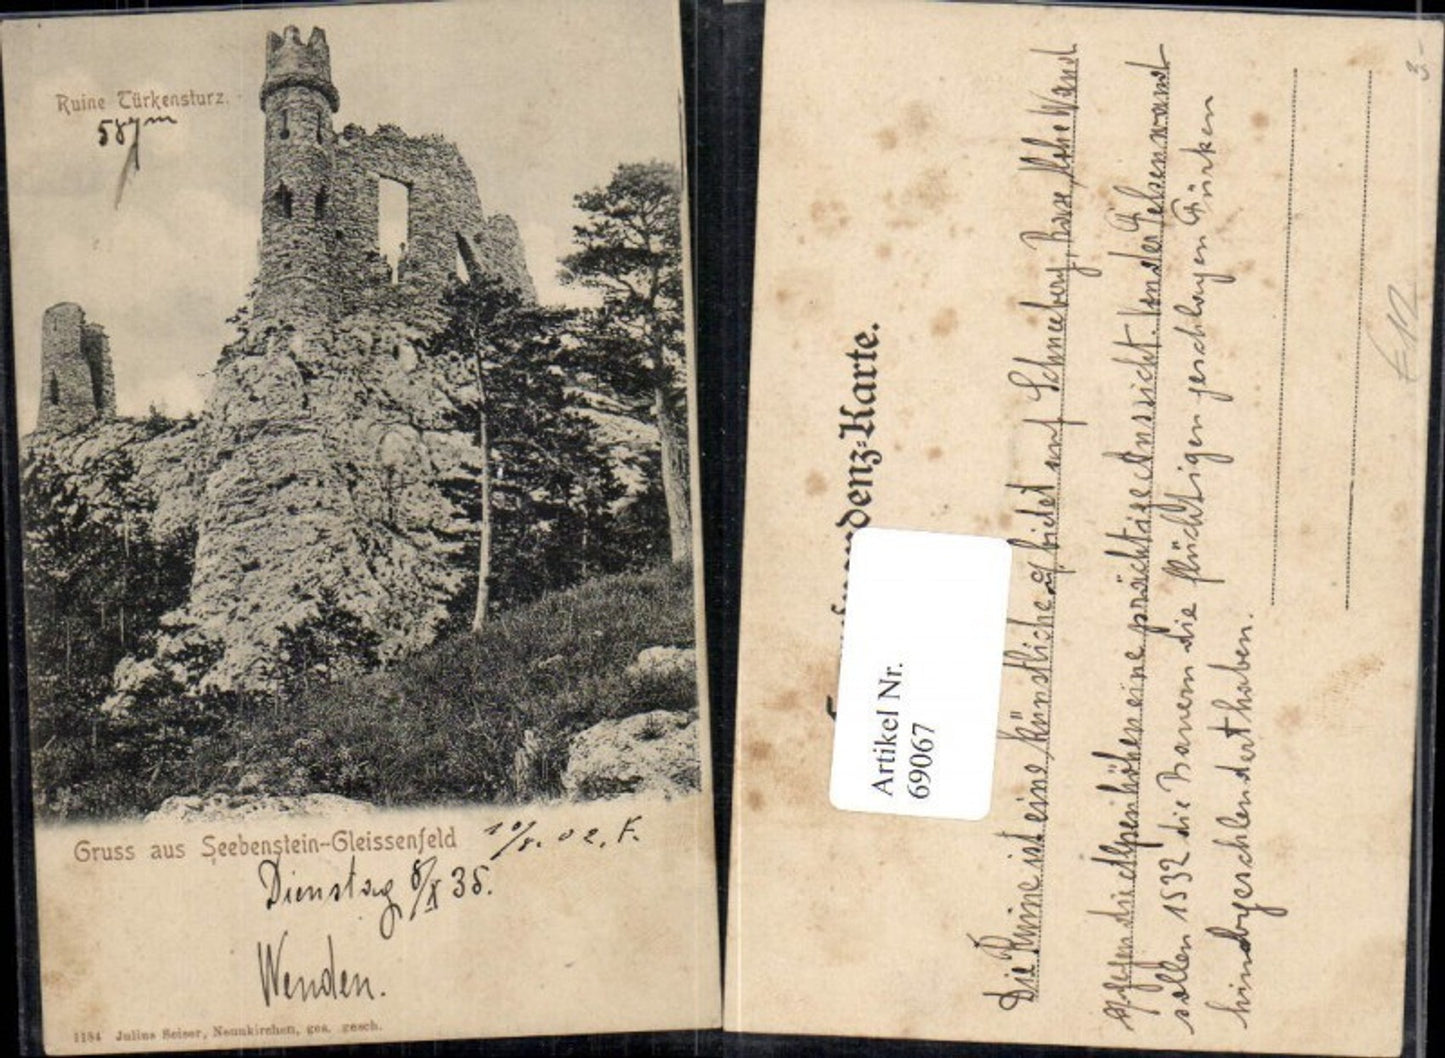 Ruine Türkensturz.
587m
Gruss aus Seebenstein-Gleissenfeld
10/8. 02. F.
Dienstag 8/X 35.
Wenden.
1184 Julius Seiser, Neunkirchen, ges. gesch.
denz-Karte.
Artikel Nr.
69067
Die Ruine ist eine künstliche u. bietet auf Schneeberg, Rax, Hohe Wand
gegen die Alpenhöhen eine prächtige Aussicht. Von der Felsenwand
sollen 1532 die Bauern die flüchtigen geschlagen Türken
hinabgeschleudert haben.
3.-